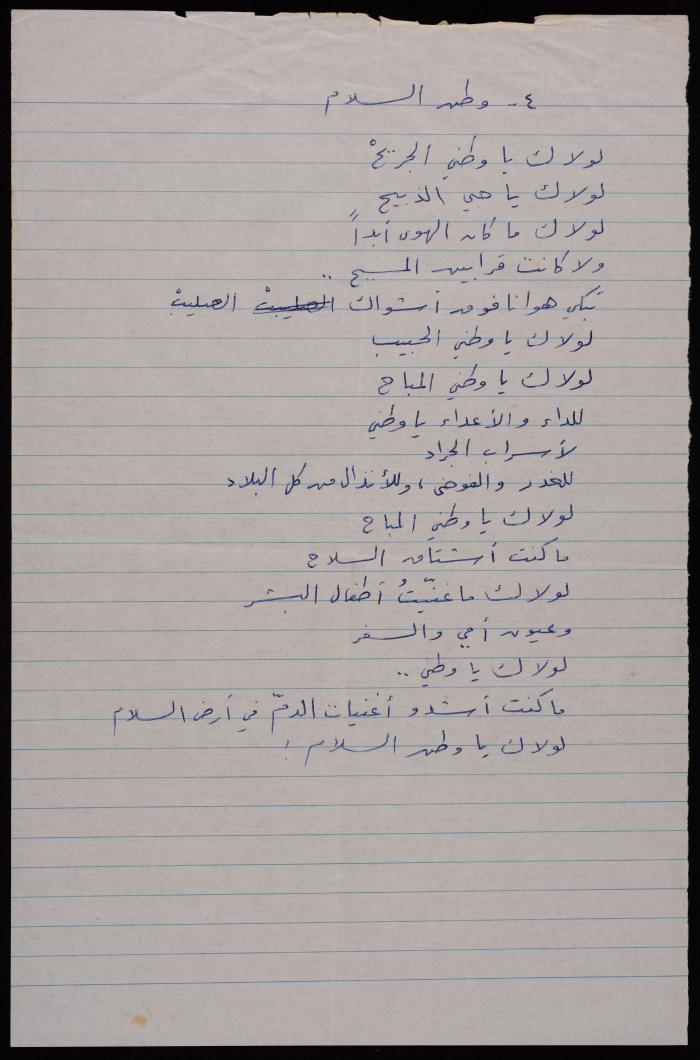 ٤- وطن السلام
لولاك يا وطني الجريحْ
لولاك يا حبي الذبيح
لولاك ما كان الهوى أبداً
ولا كانت قرابين المسيح ..
تبكي هوانا فوق أشواك الصليبْ الصليبْ
لولاك يا وطني الحبيب
لولاك يا وطني المباح
للداء والأعداء يا وطني
لأسراب الجراد
للغدر والفوضى، وللأنذال من كل البلاد
لولاك يا وطني المباح
ما كنت أشتاق السلاح
لولاك ما غنّيتُ أطفال البشر
وعيون أمي والسفر
لولاك يا وطني ..
ما كنت أشدو أغنيات الدمّ في أرض السلام
لولاك يا وطن السلام !